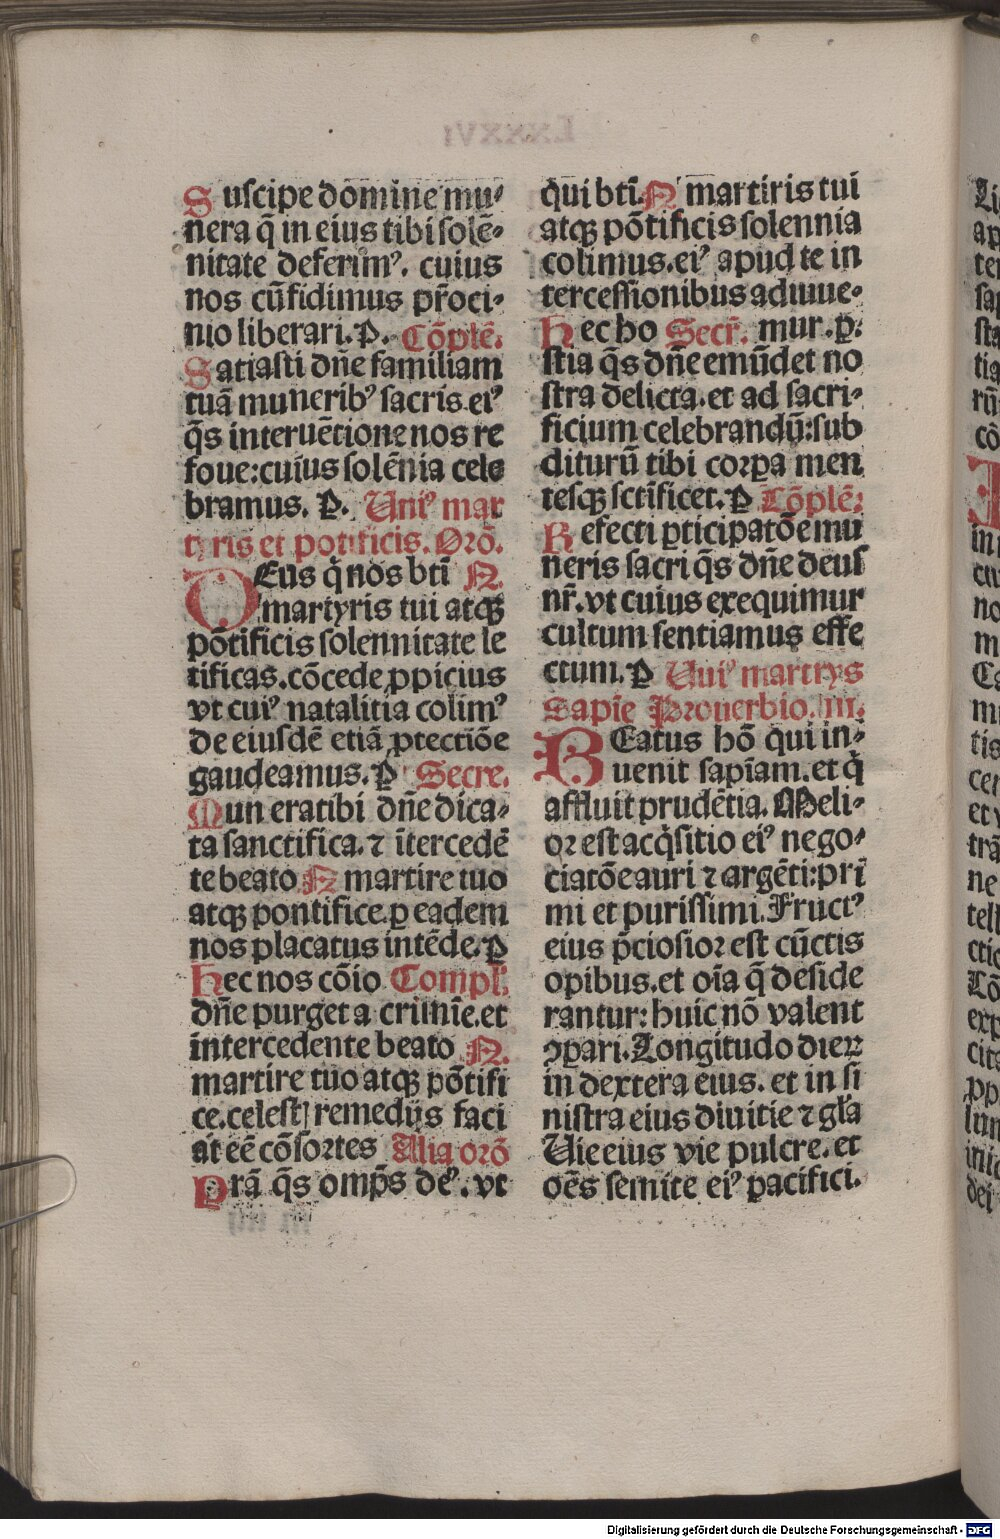 Suscipe domine mu⸗
nera q̄ in eius tibi solē⸗
nitate deferimꝰ. cuius
nos cūfidimus pr̄oci⸗
nio liberari. P. Cōplē.
Satiasti dn̄e familiam
tuā muneribꝰ sacris. eiꝰ
q̄s interuētione nos re
foue: cuius solēnia cele
bramus. P. Uniꝰ mar
tyris et pōtificis. Orō.
DEus q̇ nos bt̄i N.
martyris tui atqꝫ
pōtificis solennitate le
tificas. cōcede ꝓpicius
vt cuiꝰ natalitia colimꝰ
de eiusdē etiā ꝓtectiōe
gaudeamus. P Secre.
Mun eratibi dn̄e dica⸗
ta sanctifica. ⁊ ītercedē
te beato N martire tuo
atqꝫ pontifice. ꝑ eadem
nos placatus intēde. P
Hec nos cōio Compl̄.
dn̄e purget a crimīe. et
intercedente beato N.
martire tuo atqꝫ pōtifi
ce. celestꝭ remedijs faci
at eē cōsortes Alia orō
Prā q̄s omp̄s deꝰ. vt
qui bt̄i. N martiris tui
atqꝫ pōtificis solennia
colimus. eiꝰ apud te in
tercessionibus adiuue⸗
Hec ho Secr̄. mur. ꝑ.
stia q̄s dn̄e emūdet no
stra delicta. et ad sacri⸗
ficium celebrandū: sub
diturū tibi corꝑa men
tesqꝫ sctīficet. P Cōplē:
Refecti ꝑticipatōe mu
neris sacri q̄s dn̄e deus
nr̄. vt cuius exequimur
cultum sentiamus effe
ctum. P Uniꝰ martrys
Sapīe Prouerbio. iii.
BEatus hō qui in⸗
uenit sapīam. et q̇
affluit prudētia. Meli⸗
or est acq̇sitio eiꝰ nego⸗
ciatōe auri ⁊ argēti: pri
mi et purissimi. Fructꝰ
eius p̄ciosior est cūctis
opibus. et oīa q̄ deside
rantur: huic nō valent
ꝯꝑari. Longitudo dieꝝ
in dextera eius. et in si
nistra eius diuitie ⁊ gl̄a
Uie eius vie pulcre. et
oēs semite eiꝰ pacifici.
Digitalisierung gefördert durch die Deutsche Forschungsgemeinschaft - DFG